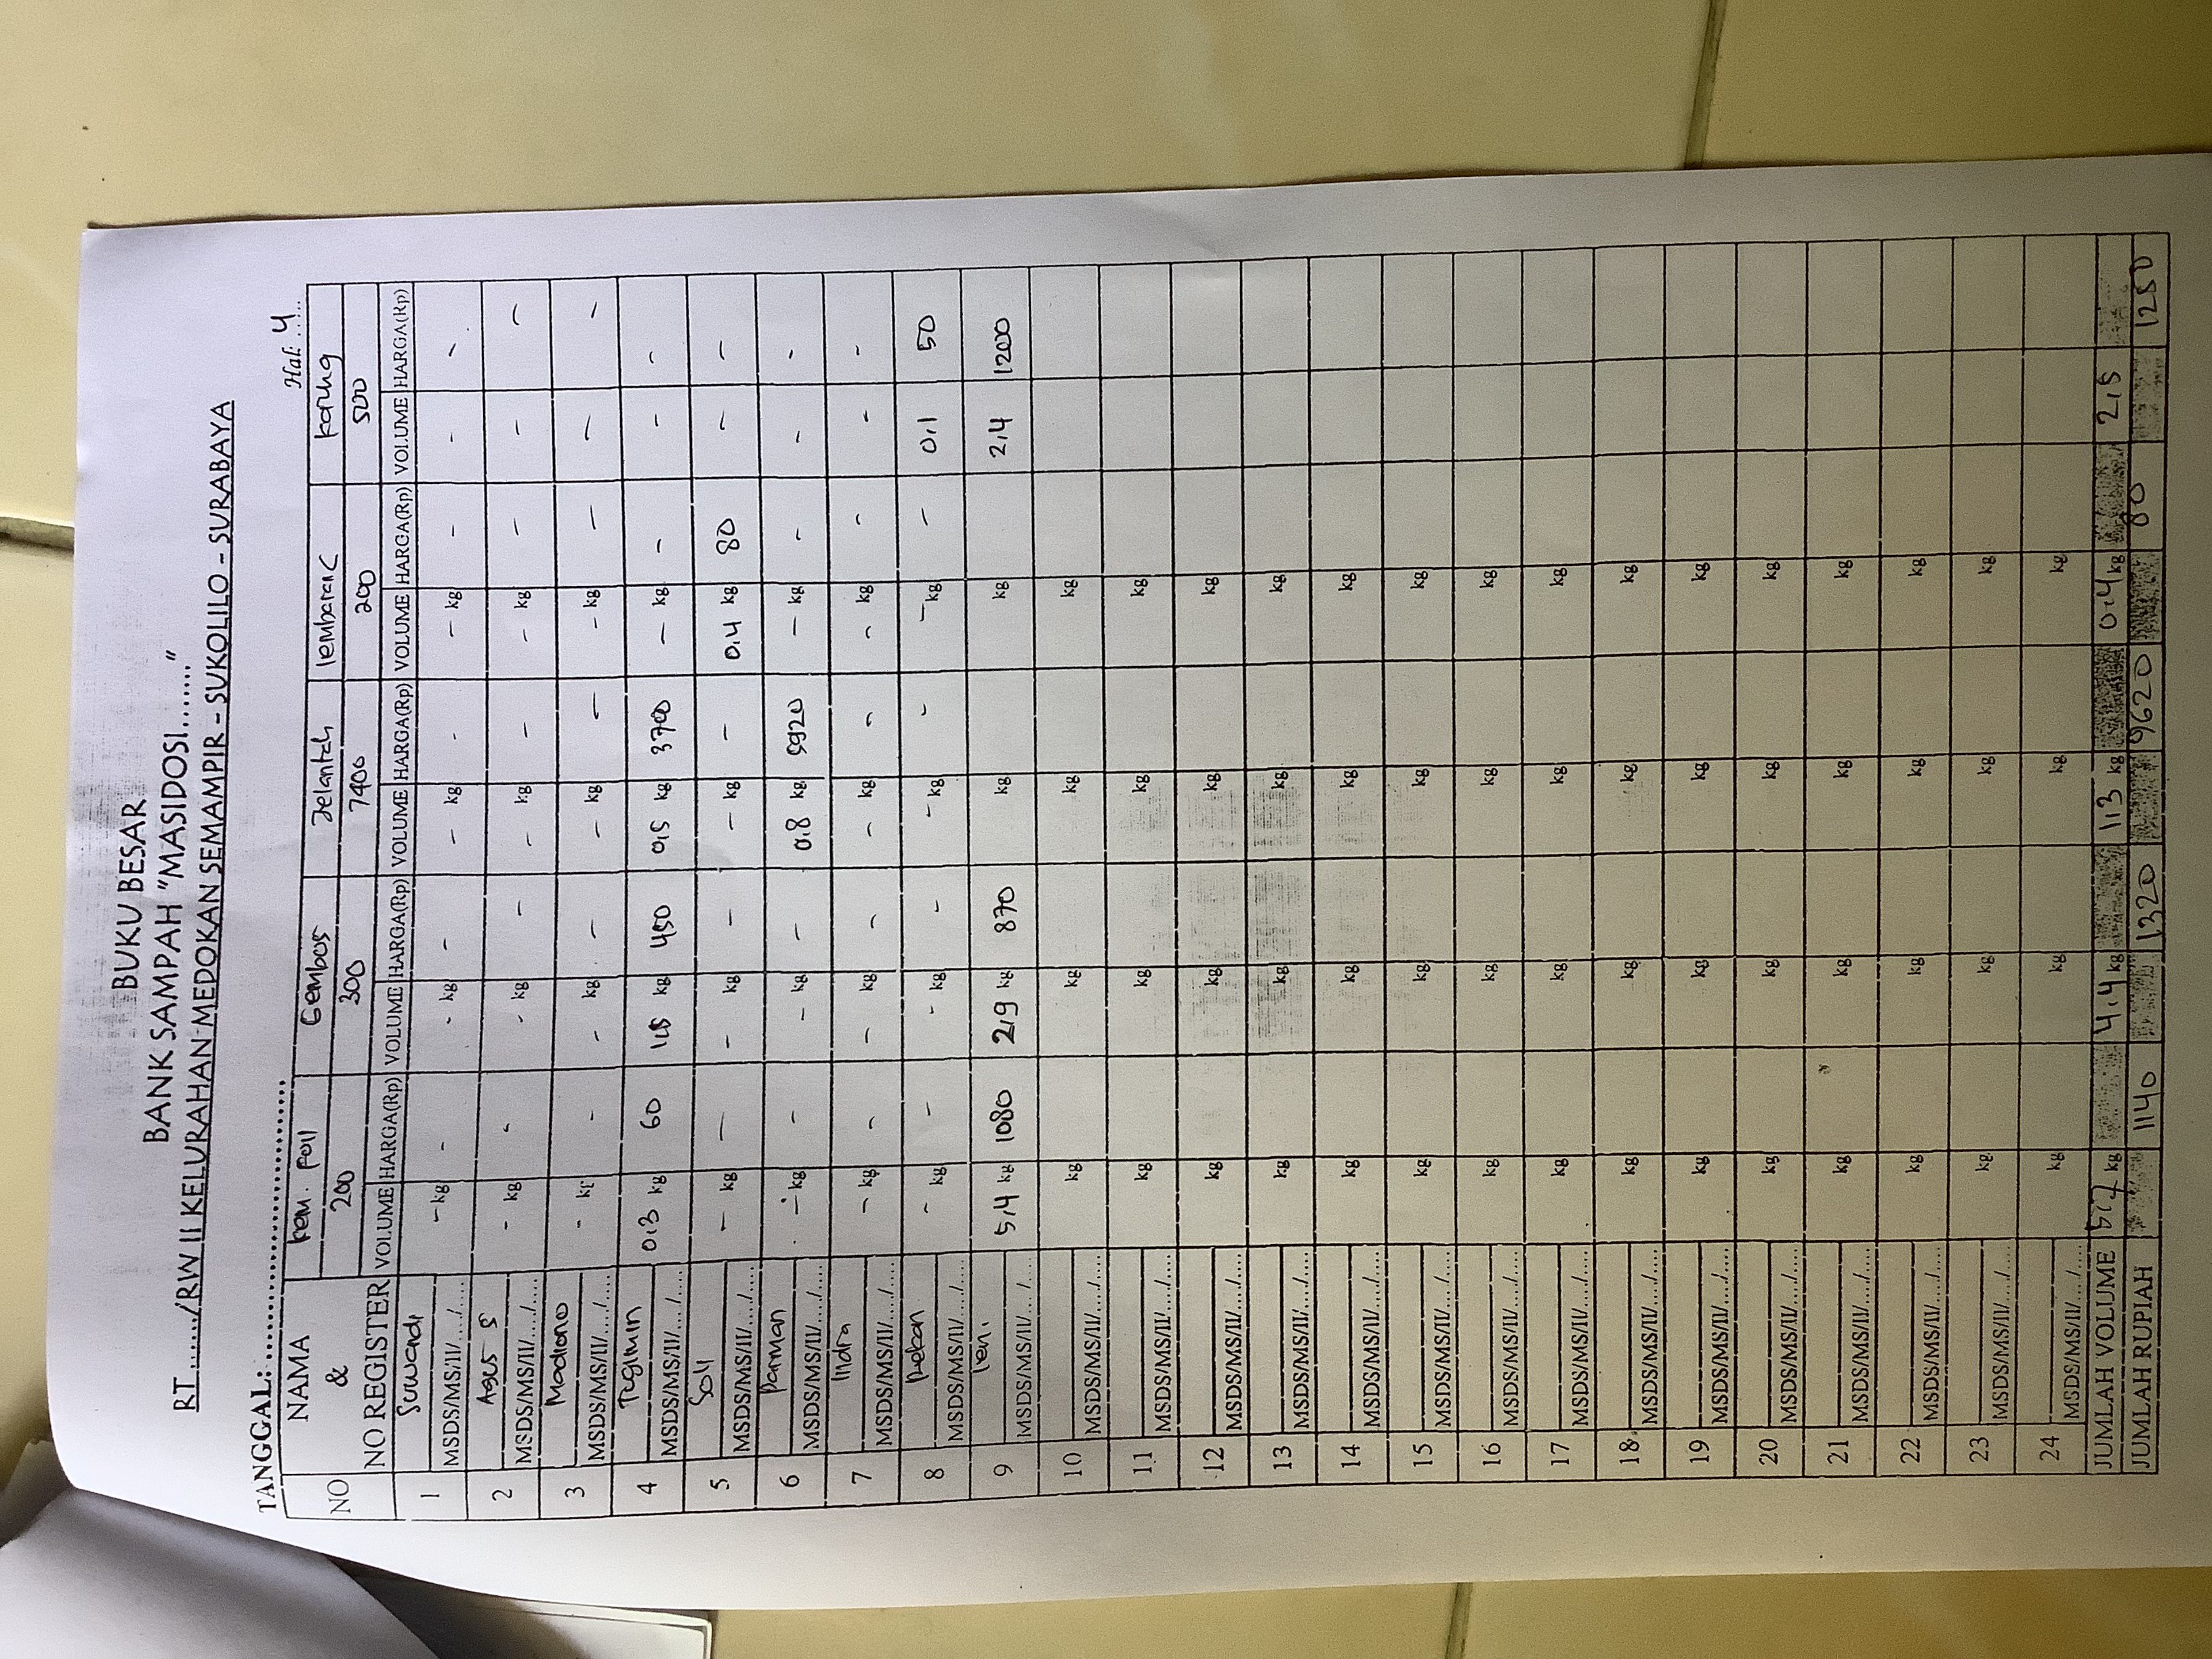 BUKU BESAR
BANK SAMPAH "MASIDOSI......."
RT ....../RW II KELURAHAN MEDOKAN SEMAMPIR - SUKOLILO - SURABAYA
TANGGAL: ..............................
Hal: 4
NO NAMA & NO REGISTER kem. foil Gembos Jelantah lembaran C karung
200 300 7400 200 500
VOLUME HARGA(Rp) VOLUME HARGA(Rp) VOLUME HARGA(Rp) VOLUME HARGA(Rp) VOLUME HARGA(Rp)
1 Suwandi
MSDS/MS/II/..../.... - kg - - kg - - kg - - kg - - -
2 Agus S
MSDS/MS/II/..../.... - kg - - kg - - kg - - kg - - -
3 Madiono
MSDS/MS/II/..../.... - kg - - kg - - kg - - kg - - -
4 Tugimin
MSDS/MS/II/..../.... 0,3 kg 60 1,5 kg 450 0,5 kg 3700 - kg - - -
5 Soli
MSDS/MS/II/..../.... - kg - - kg - - kg - 0,4 kg 80 - -
6 Parman
MSDS/MS/II/..../.... - kg - - kg - 0,8 kg 5920 - kg - - -
7 Indra
MSDS/MS/II/..../.... - kg - - kg - - kg - - kg - - -
8
MSDS/MS/II/..../.... - kg - - kg - - kg - - kg - 0,1 50
9
MSDS/MS/II/..../.... 5,4 kg 1080 2,9 kg 870 kg kg 2,4 1200
10 MSDS/MS/II/..../.... kg kg kg kg
11 MSDS/MS/II/..../.... kg kg kg kg
12 MSDS/MS/II/..../.... kg kg kg kg
13 MSDS/MS/II/..../.... kg kg kg kg
14 MSDS/MS/II/..../.... kg kg kg kg
15 MSDS/MS/II/..../.... kg kg kg kg
16 MSDS/MS/II/..../.... kg kg kg kg
17 MSDS/MS/II/..../.... kg kg kg kg
18 MSDS/MS/II/..../.... kg kg kg kg
19 MSDS/MS/II/..../.... kg kg kg kg
20 MSDS/MS/II/..../.... kg kg kg kg
21 MSDS/MS/II/..../.... kg kg kg kg
22 MSDS/MS/II/..../.... kg kg kg kg
23 MSDS/MS/II/..../.... kg kg kg kg
24 MSDS/MS/II/..../.... kg kg kg kg
JUMLAH VOLUME 5,7 kg 4,4 kg 1,3 kg 0,4 kg 2,5
JUMLAH RUPIAH 1140 1320 9620 80 1250